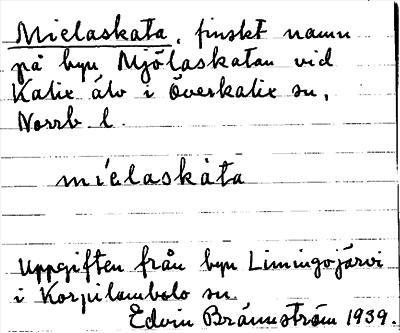 Mielaskata, finskt namn
på byn Mjölaskatan vid
Kalix älv i Överkalix sn,
Norrb l.
míelaskàta
Uppgiften från byn Limingojärvi
i Korpilombolo sn
Edvin Brännström 1939.